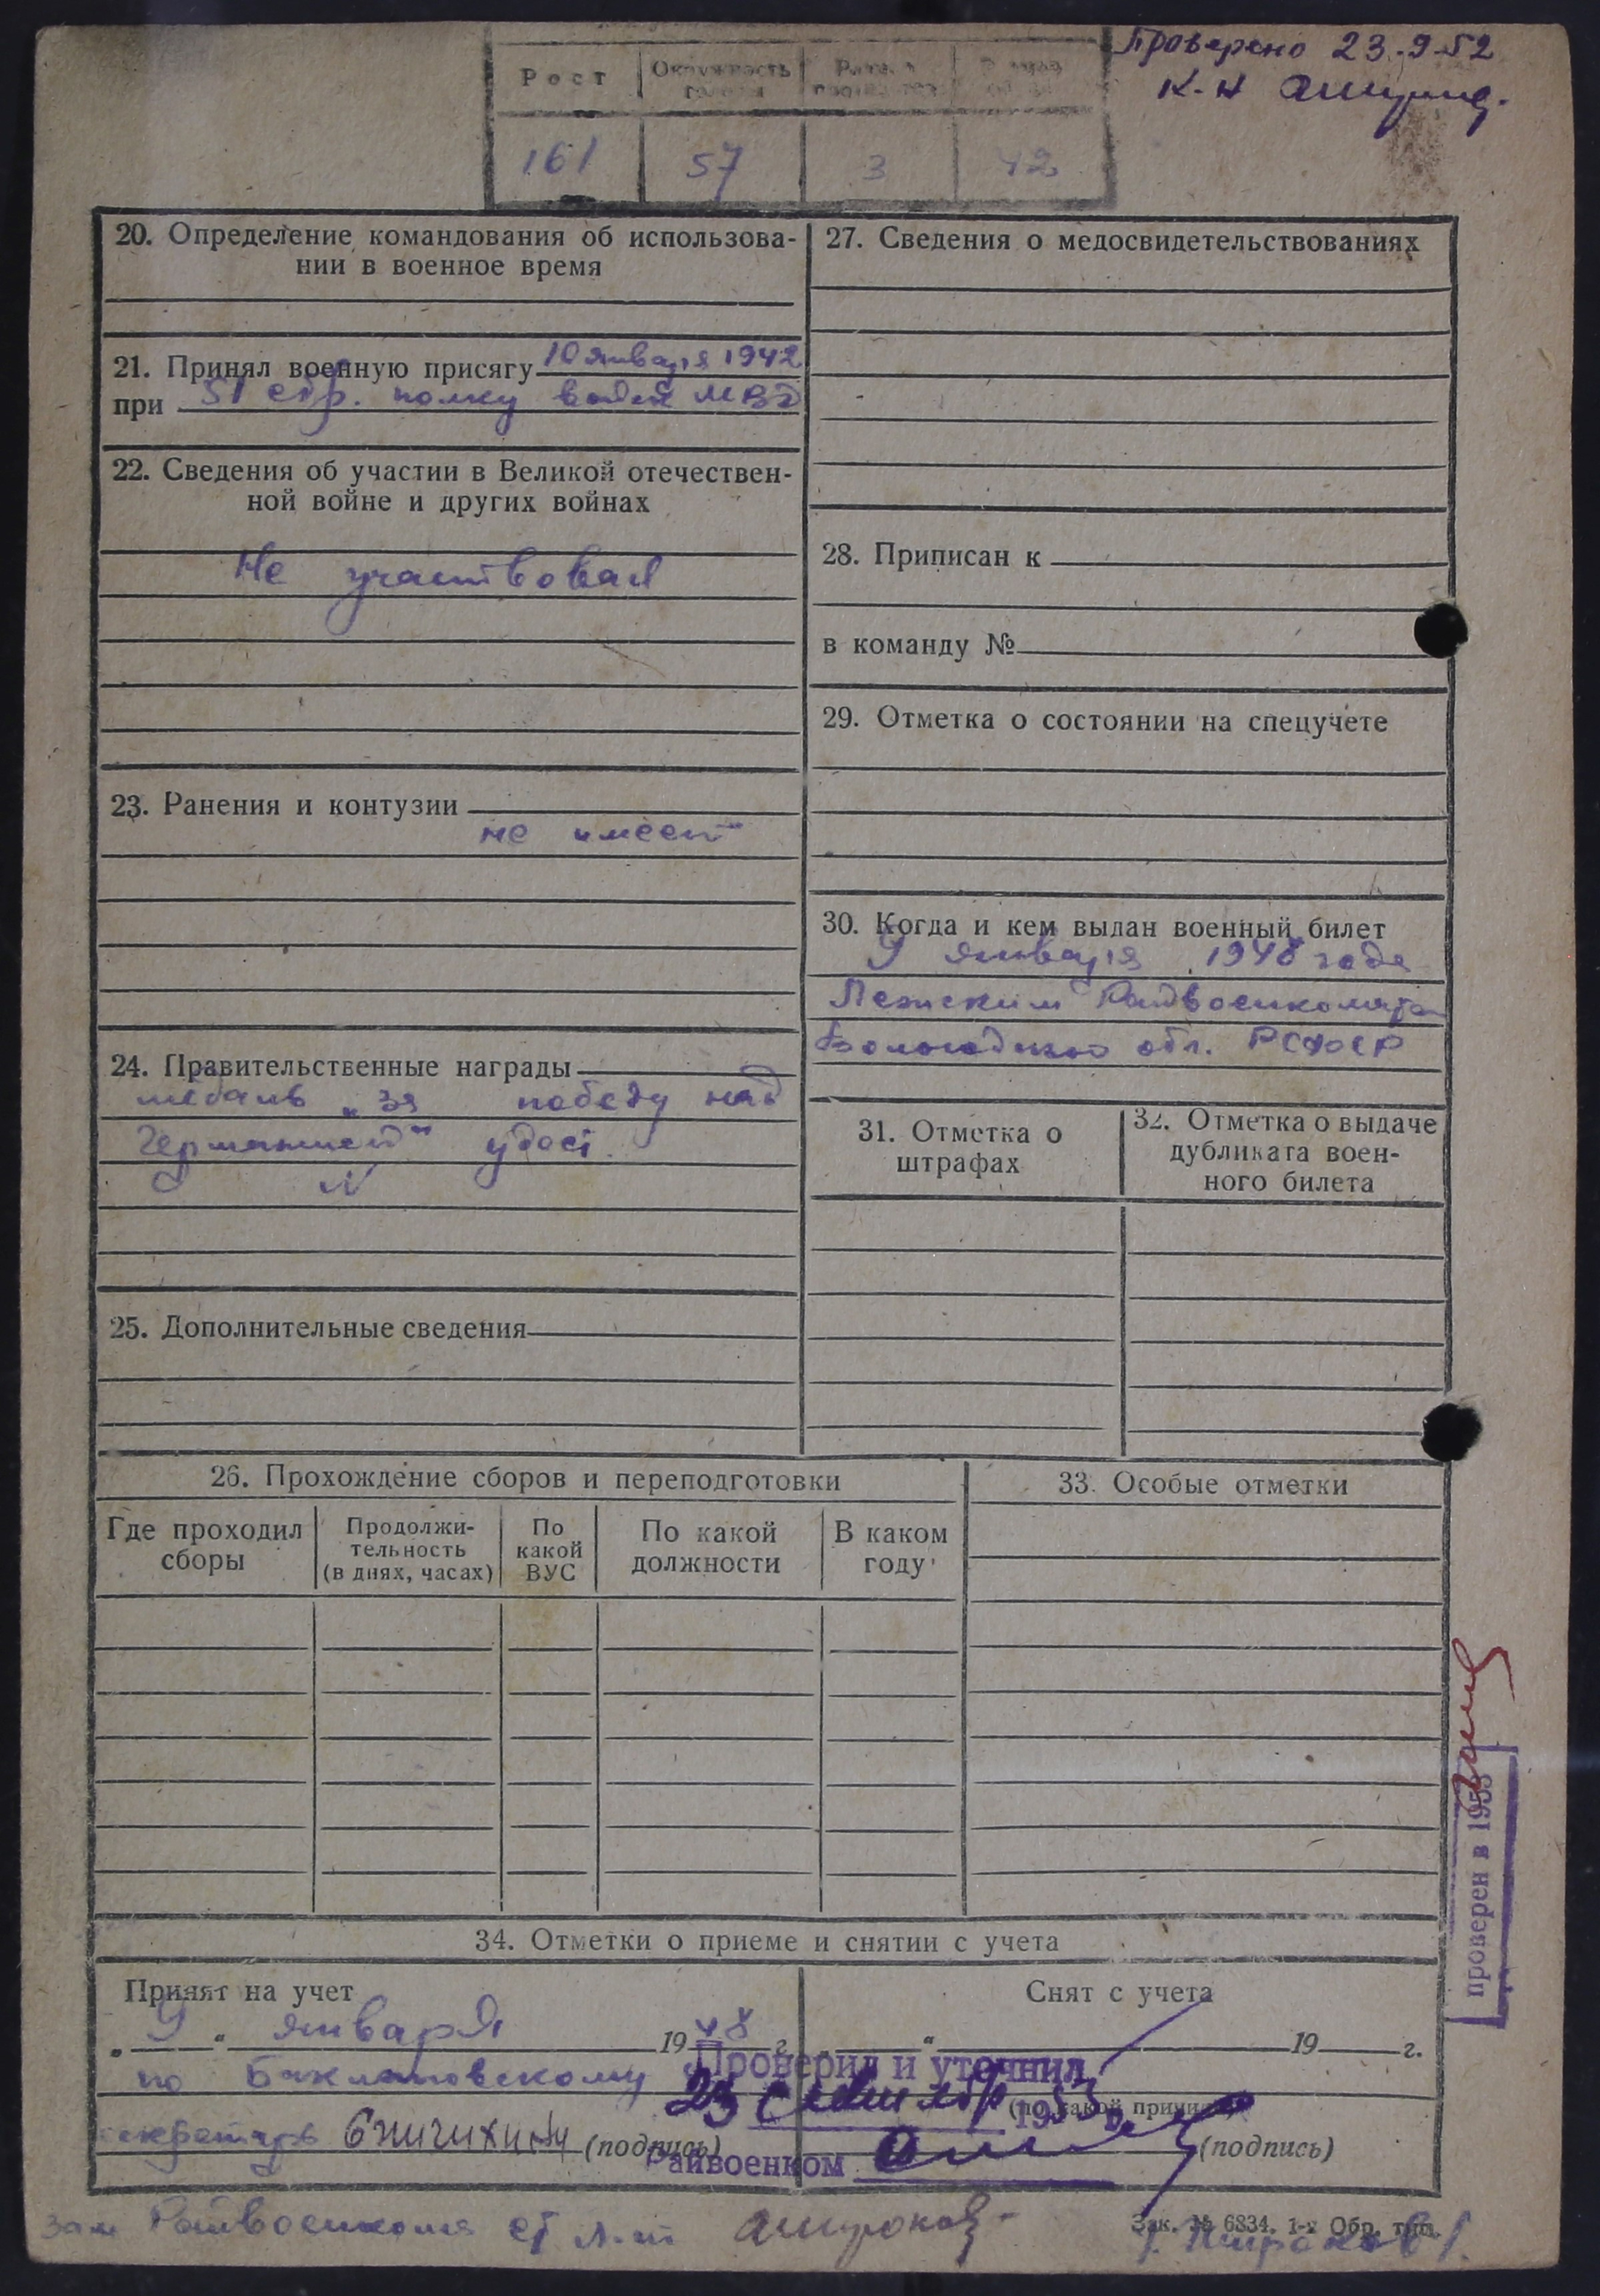 Проверено 23.9.52
К-н
Рост
Окружность головы
161 57 3 42
20. Определение командования об использова-
нии в военное время
21. Принял военную присягу 10 января 1942
при 51 стр. полку войск МВД
22. Сведения об участии в Великой отечествен-
ной войне и других войнах
Не участвовал
23. Ранения и контузии
не имеет
24. Правительственные награды
медаль „за победу над
Германией“ удост.
N
25. Дополнительные сведения
27. Сведения о медосвидетельствованиях
28. Приписан к
в команду №
29. Отметка о состоянии на спецучете
30. Когда и кем выдан военный билет
9 января 1948 года
Лежским Райвоенкоматом
Вологодской обл. РСФСР
31. Отметка о
штрафах
32. Отметка о выдаче
дубликата воен-
ного билета
26. Прохождение сборов и переподготовки
Где проходил
сборы
Продолжи-
тельность
(в днях, часах)
По
какой
ВУС
По какой
должности
В каком
году
33. Особые отметки
проверен в 1953
34. Отметки о приеме и снятии с учета
Принят на учет
„9“ января 1948 г.
по Баклановскому
секретарь (подпись)
Снят с учета
„ “ 19 г.
(по какой причине)
(подпись)
Проверил и уточнил
23 сентября 1953 г.
Райвоенком
Зам Райвоенкома ст л-т
Зак. № 6834. 1-я Обр. тип.